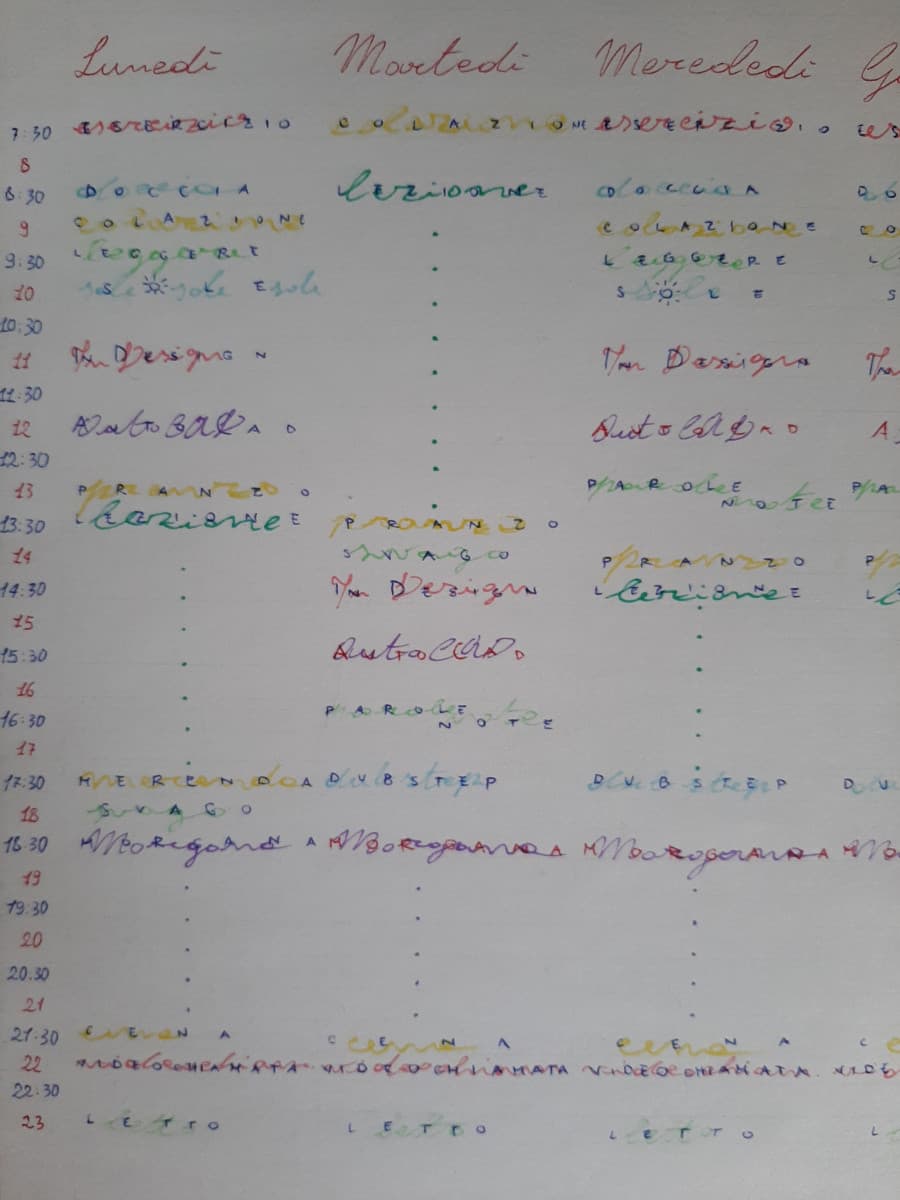 Lunedì Martedì Mercoledì G
7:30 esercizio colazione esercizio es
8
8:30 doccia lezione doccia do
9 colazione colazione co
9:30 leggere leggere l
10 sole sole s
10:30
11 In Design In Design In
11:30
12 AutoCAD AutoCAD A
12:30
13 pranzo parole note pa
13:30 lezione pranzo
svago
14 pranzo p
14:30 In Design lezione l
15
15:30 AutoCAD
16
16:30 parole note
17
17:30 merenda dubstep dubstep du
18 svago
18:30 Morgana Morgana Morgana Mo
19
19:30
20
20.30
21
21:30 cena cena cena c
22 videochiamata videochiamata videochiamata vide
22:30
23 letto letto letto l